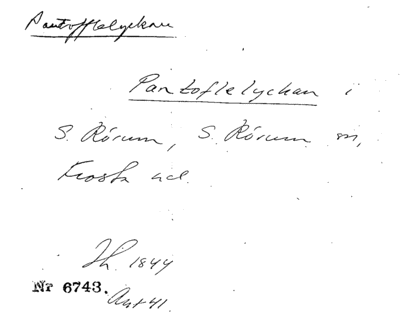 Pantofflelyckan
Pantoflelyckan i
S. Rörum, S. Rörum sn,
Frosta hd.
Jh. 1844
Nr 6743.
Akt 41